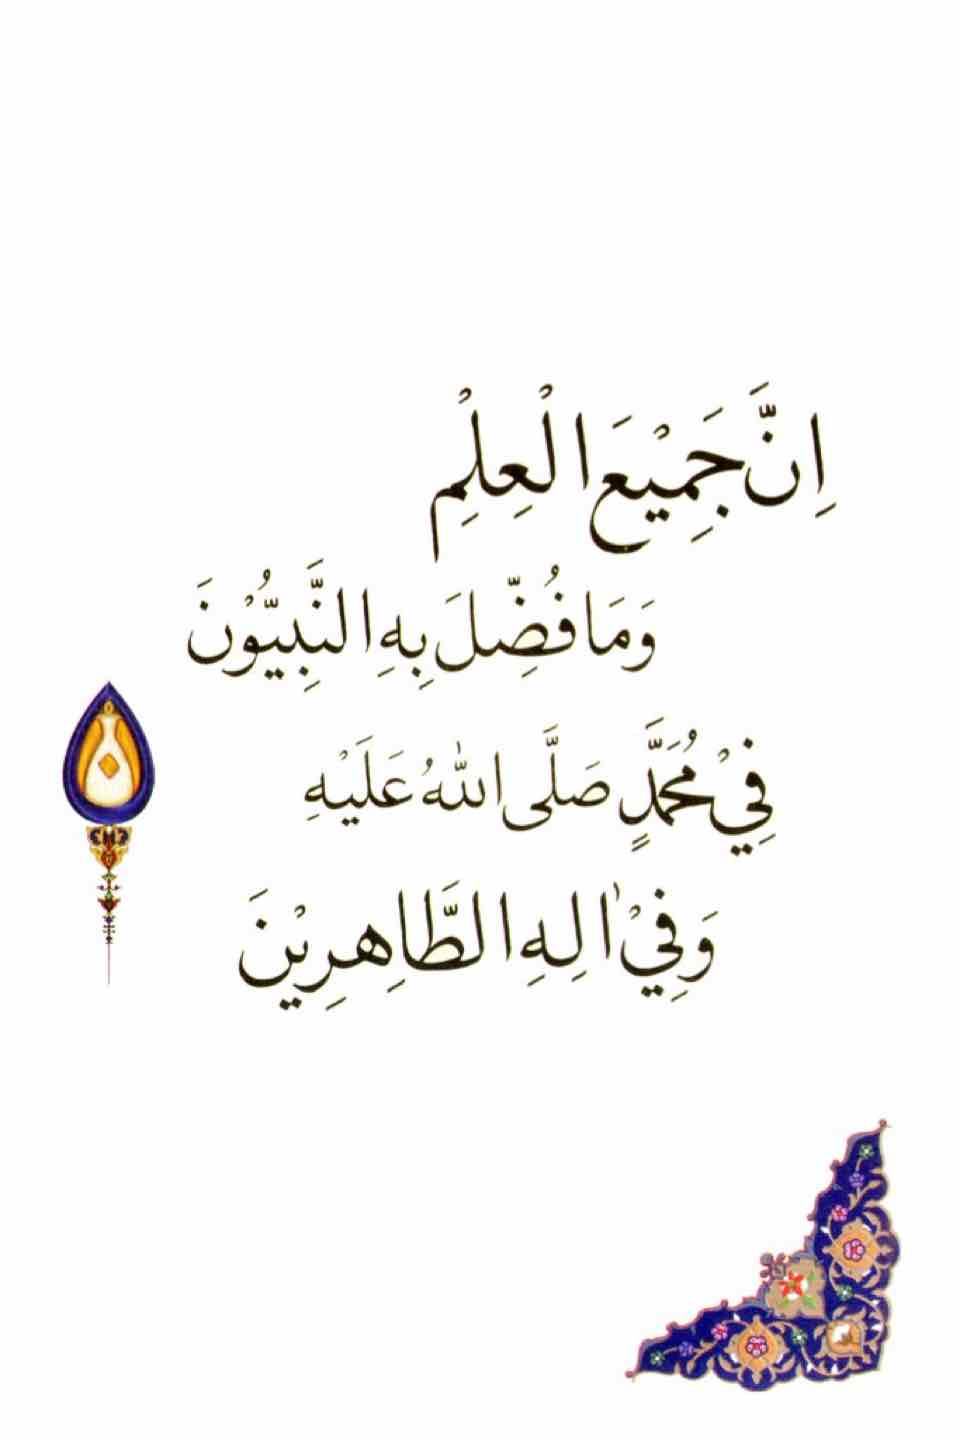 اِنَّ جَمِيْعَ الْعِلْمِ
وَمَا فُضِّلَ بِهِ النَّبِيُّوْنَ
فِيْ مُحَمَّدٍ صَلَّى اللهُ عَلَيْهِ
وَفِيْ اٰلِهِ الطَّاهِرِيْنَ